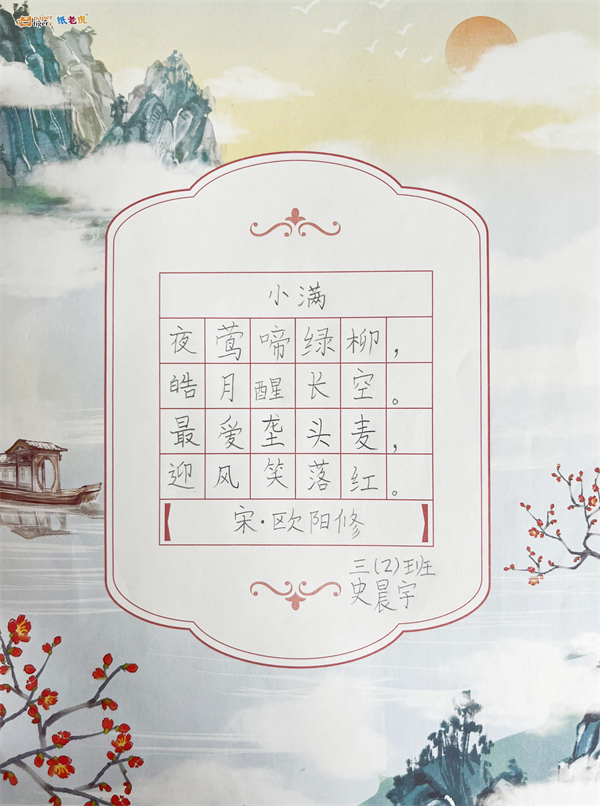 纸老虎
小满
夜莺啼绿柳，
皓月醒长空。
最爱垄头麦，
迎风笑落红。
宋·欧阳修
三(2)班
史晨宇